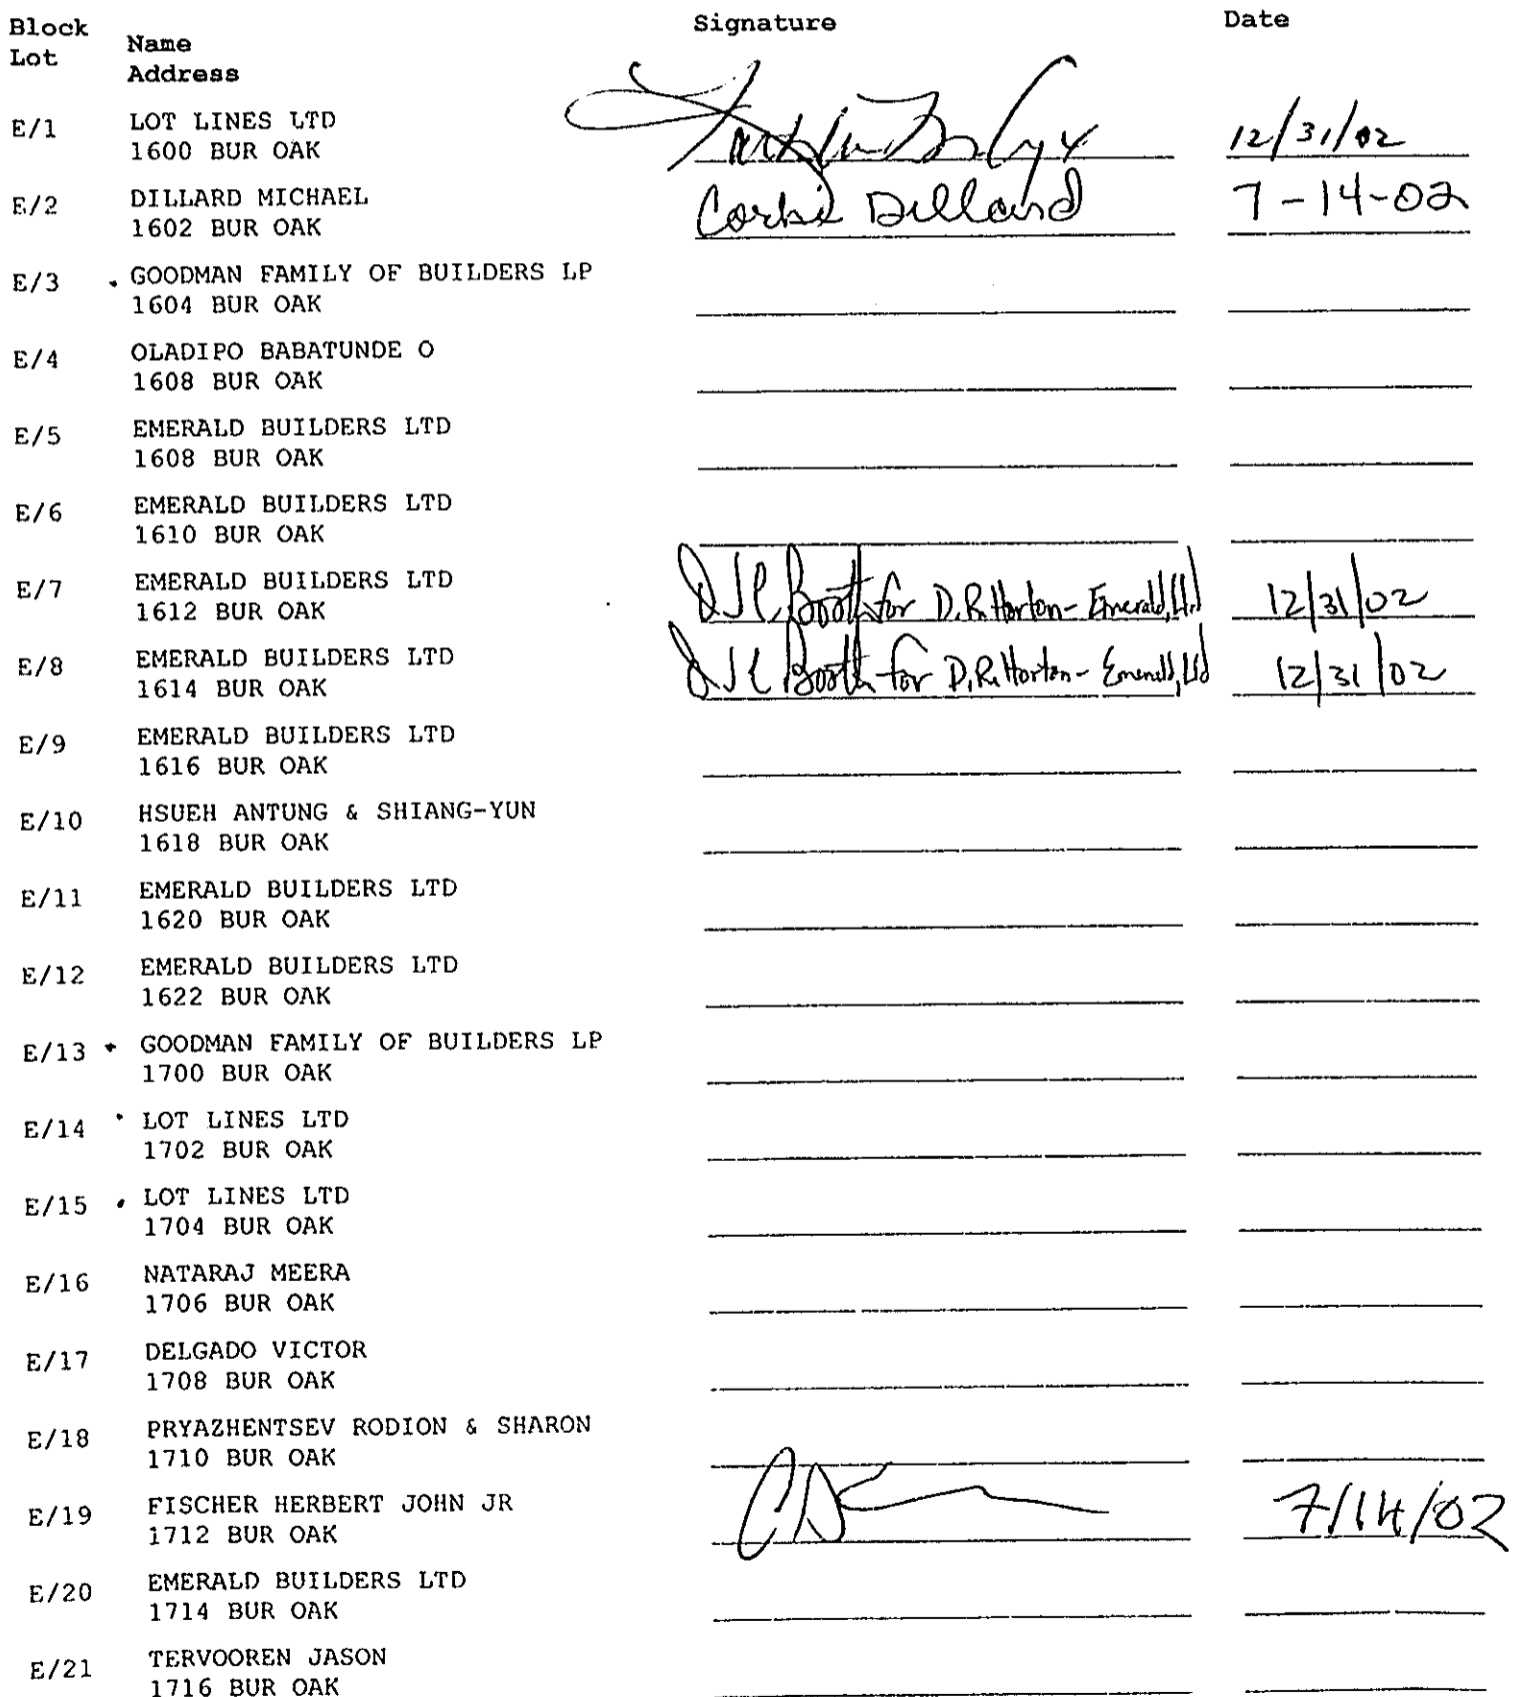 Block Lot Name Address Signature Date
E/1 LOT LINES LTD 12/31/02
1600 BUR OAK
E/2 DILLARD MICHAEL Corbie Dillard 7-14-02
1602 BUR OAK
E/3 GOODMAN FAMILY OF BUILDERS LP
1604 BUR OAK
E/4 OLADIPO BABATUNDE O
1608 BUR OAK
E/5 EMERALD BUILDERS LTD
1608 BUR OAK
E/6 EMERALD BUILDERS LTD
1610 BUR OAK
E/7 EMERALD BUILDERS LTD Booth for D.R. Horton - Emerald, Ltd 12/31/02
1612 BUR OAK
E/8 EMERALD BUILDERS LTD Booth for D.R. Horton - Emerald, Ltd 12/31/02
1614 BUR OAK
E/9 EMERALD BUILDERS LTD
1616 BUR OAK
E/10 HSUEH ANTUNG & SHIANG-YUN
1618 BUR OAK
E/11 EMERALD BUILDERS LTD
1620 BUR OAK
E/12 EMERALD BUILDERS LTD
1622 BUR OAK
E/13 GOODMAN FAMILY OF BUILDERS LP
1700 BUR OAK
E/14 LOT LINES LTD
1702 BUR OAK
E/15 LOT LINES LTD
1704 BUR OAK
E/16 NATARAJ MEERA
1706 BUR OAK
E/17 DELGADO VICTOR
1708 BUR OAK
E/18 PRYAZHENTSEV RODION & SHARON
1710 BUR OAK
E/19 FISCHER HERBERT JOHN JR 7/14/02
1712 BUR OAK
E/20 EMERALD BUILDERS LTD
1714 BUR OAK
E/21 TERVOOREN JASON
1716 BUR OAK